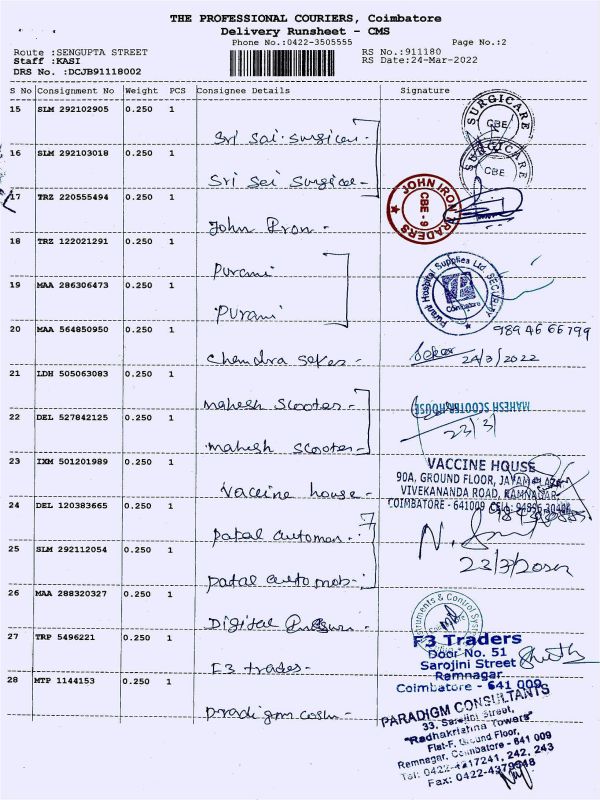 THE PROFESSIONAL COURIERS, Coimbatore
Delivery Runsheet - CMS
Phone No.:0422-3505555
Page No.:2
Route :SENGUPTA STREET
RS No.:911180
Staff :KASI
RS Date:24-Mar-2022
DRS No. :DCJB91118002
S No Consignment No Weight PCS Consignee Details Signature
15 SLM 292102905 0.250 1
SURGICARE
CBE
Sri Sai Surgicare -
16 SLM 292103018 0.250 1
SURGICARE
CBE
Sri Sei Surgical -
17 TRZ 220555494 0.250 1
JOHN IRON TRADERS
CBE - 9
John Iron -
18 TRZ 122021291 0.250 1
Purani
19 MAA 286306473 0.250 1
Purani Hospital Supplies Ltd SECURITY
Coimbatore
Purani
20 MAA 564850950 0.250 1
98946 66799
Chendra Seker -
Sekar 24/3/2022
21 LDH 505063083 0.250 1
Mahesh Scooter -
MAHESH SCOOTER HOUSE
22 DEL 527842125 0.250 1
23/3/
Mahesh Scooter -
23 IXM 501201989 0.250 1
VACCINE HOUSE
90A, GROUND FLOOR, JAYAM PLAZA
VIVEKANANDA ROAD, RAMNAGAR
Vaccine house -
24 DEL 120383665 0.250 1
COIMBATORE - 641009 CELL:
Patal automan -
25 SLM 292112054 0.250 1
23/3/2022
Patal auto mob -
26 MAA 288320327 0.250 1
Instruments & Control Systems
Digital
27 TRP 5496221 0.250 1
F3 Traders
Door No. 51
Sarojini Street
F3 trades -
Ramnagar
28 MTP 1144153 0.250 1
Coimbatore - 641 009
Pradigm
PARADIGM CONSULTANTS
33, Sarojini Street,
"Radhakrishna Towers"
Flat-F, Ground Floor,
Ramnagar, Coimbatore - 641 009
Tel: 0422-4217241, 242, 243
Fax: 0422-4379948